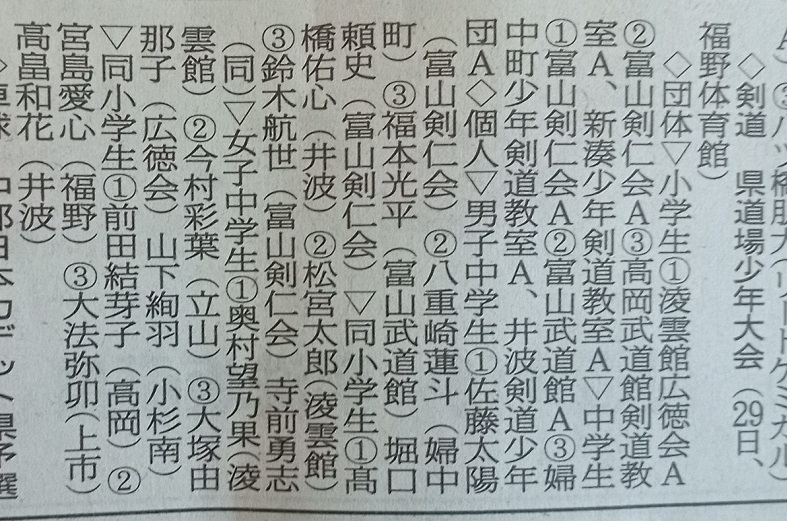 ◇剣道　県道場少年大会（29日、
福野体育館）
◇団体▽小学生①凌雲館広徳会A
②富山剣仁会A③高岡武道館剣道教
室A、新湊少年剣道教室A▽中学生
①富山剣仁会A②富山武道館A③婦
中町少年剣道教室A、井波剣道少年
団A◇個人▽男子中学生①佐藤太陽
（富山剣仁会）②八重崎蓮斗（婦中
町）③福本光平（富山武道館）堀口
頼史（富山剣仁会）▽同小学生①髙
橋佑心（井波）②松宮太郎(凌雲館)
③鈴木航世（富山剣仁会）寺前勇志
（同）▽女子中学生①奥村望乃果(凌
雲館）②今村彩葉（立山）③大塚由
那子（広徳会）山下絢羽（小杉南）
▽同小学生①前田結芽子（高岡）②
宮島愛心（福野）③大法弥卯(上市)
高畠和花（井波）